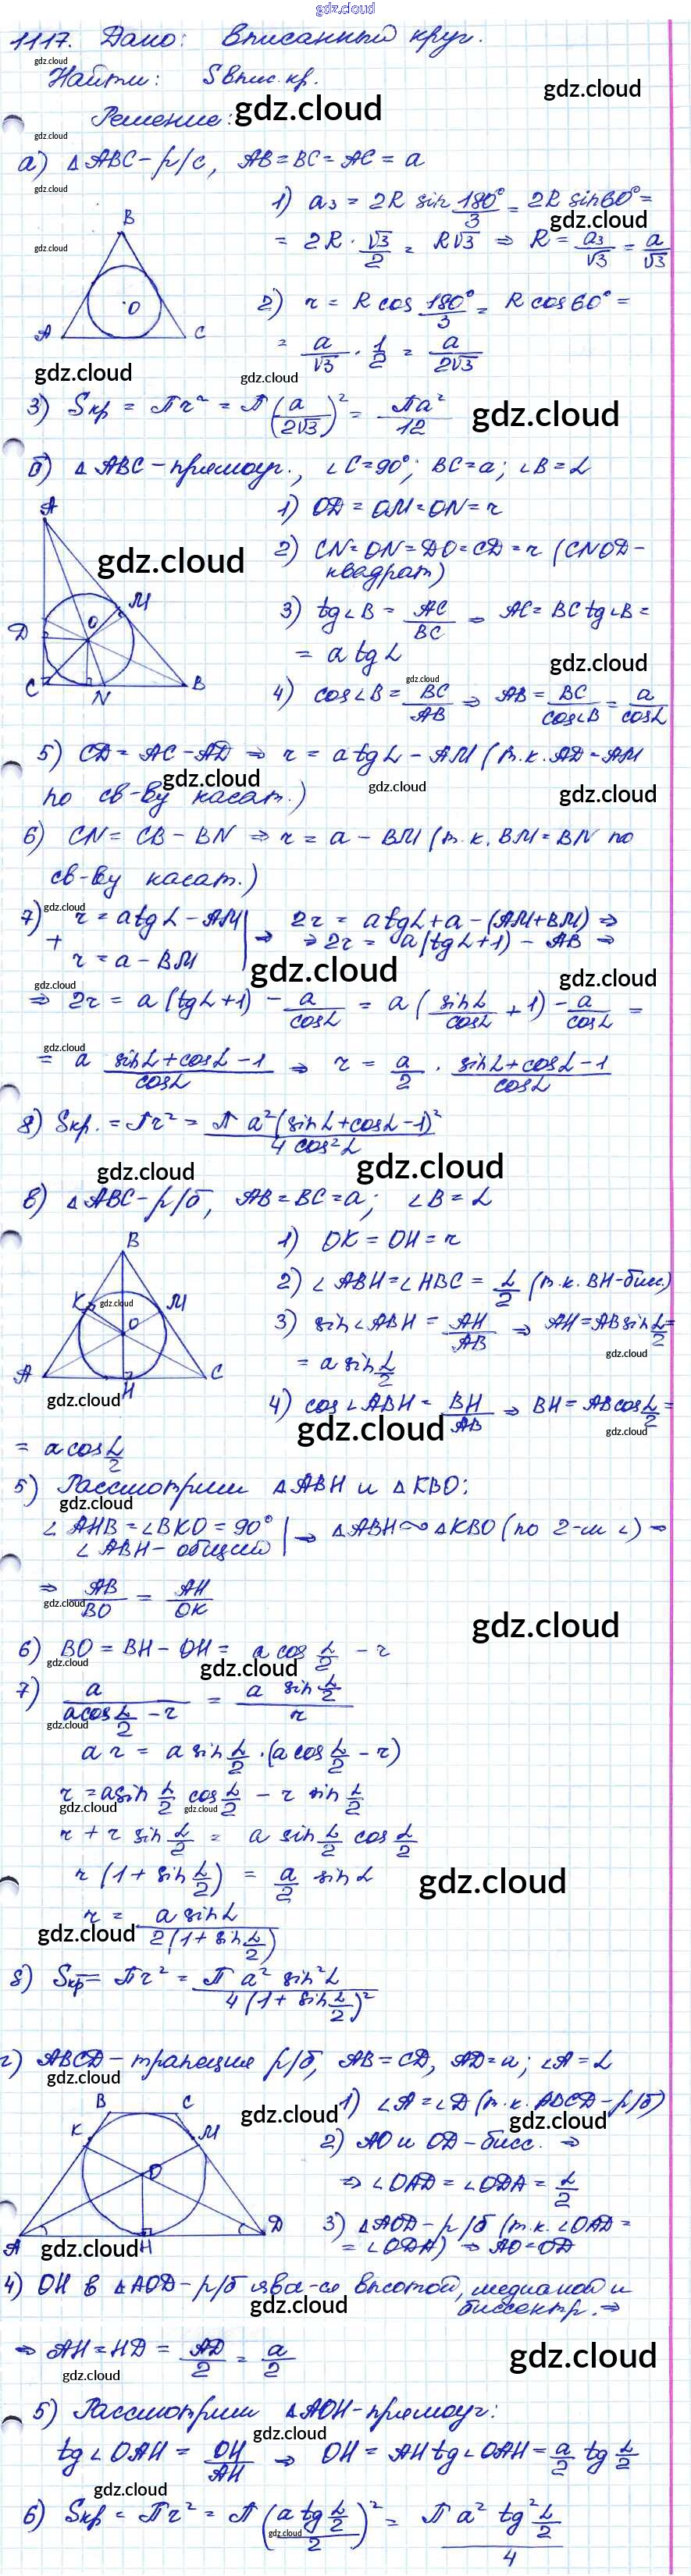 gdz.cloud
1117. Дано: Вписанный круг.
gdz.cloud
Найти: Sвпис.кр.
gdz.cloud
gdz.cloud
Решение:
gdz.cloud
а) △ABC – р/с, AB = BC = AC = a
gdz.cloud
B
1) a₃ = 2R sin 180°/3 = 2R sin 60° =
gdz.cloud
= 2R · √3/2 = R√3 ⇒ R = a₃/√3 = a/√3
gdz.cloud
O
A
C
2) r = R cos 180°/3 = R cos 60° =
= a/√3 · 1/2 = a/2√3
gdz.cloud
gdz.cloud
3) Sкр = πr² = π(a/2√3)² = πa²/12
gdz.cloud
б) △ABC – прямоуг., ∠C = 90°; BC = a; ∠B = α
A
1) OD = OM = ON = r
gdz.cloud
2) CN = ON = DO = CD = r (CNOD –
квадрат)
M
O
D
C
N
B
3) tg∠B = AC/BC ⇒ AC = BC tg∠B =
= a tg α
gdz.cloud
gdz.cloud
4) cos∠B = BC/AB ⇒ AB = BC/cos∠B = a/cos α
5) CD = AC – AD ⇒ r = a tg α – AM (т.к. AD = AM
gdz.cloud
gdz.cloud
gdz.cloud
по св-ву касат.)
6) CN = CB – BN ⇒ r = a – BM (т.к. BM = BN по
св-ву касат.)
gdz.cloud
7) r = a tg α – AM | 2r = a tg α + a – (AM + BM) ⇒
+ ⇒ ⇒ 2r = a(tg α + 1) – AB ⇒
r = a – BM
gdz.cloud
gdz.cloud
gdz.cloud
⇒ 2r = a(tg α + 1) – a/cos α = a(sin α/cos α + 1) – a/cos α =
gdz.cloud
= a sin α + cos α – 1/cos α ⇒ r = a/2 · sin α + cos α – 1/cos α
8) Sкр. = πr² = π a²(sin α + cos α – 1)²/4 cos² α
gdz.cloud
gdz.cloud
в) △ABC – р/б, AB = BC = a; ∠B = α
B
1) OK = OH = r
K
gdz.cloud
M
O
A
H
C
2) ∠ABH = ∠HBC = α/2 (т.к. BH – бисс.)
3) sin∠ABH = AH/AB ⇒ AH = AB sin α/2 =
gdz.cloud
= a sin α/2
gdz.cloud
4) cos∠ABH = BH/AB ⇒ BH = AB cos α/2 =
gdz.cloud
gdz.cloud
= a cos α/2
5) Рассмотрим △ABH и △KBO:
gdz.cloud
∠AHB = ∠BKO = 90° | ⇒ △ABH ∾ △KBO (по 2-м ∠) ⇒
∠ABH – общий
⇒ AB/BO = AH/OK
gdz.cloud
gdz.cloud
6) BO = BH – OH = a cos α/2 – r
gdz.cloud
gdz.cloud
7) a/a cos α/2 – r = a sin α/2/r
gdz.cloud
a r = a sin α/2 · (a cos α/2 – r)
r = a sin α/2 cos α/2 – r sin α/2
gdz.cloud
gdz.cloud
r + r sin α/2 = a sin α/2 cos α/2
r(1 + sin α/2) = a/2 sin α
gdz.cloud
r = a sin α/2(1 + sin α/2)
gdz.cloud
8) Sкр = πr² = π a² sin² α/4(1 + sin α/2)²
г) ABCD – трапеция р/б, AB = CD, AD = a; ∠A = α
gdz.cloud
B
C
K
M
O
A
H
D
1) ∠A = ∠D (т.к. ABCD – р/б)
gdz.cloud
gdz.cloud
2) AO и OD – бисс. ⇒
⇒ ∠OAD = ∠ODA = α/2
3) △AOD – р/б (т.к. ∠OAD =
= ∠ODA) ⇒ AO = OD
gdz.cloud
4) OH в △AOD – р/б явл-ся высотой, медианой и
биссектр. ⇒
gdz.cloud
⇒ AH = HD = AD/2 = a/2
gdz.cloud
gdz.cloud
5) Рассмотрим △AOH – прямоуг:
gdz.cloud
tg∠OAH = OH/AH ⇒ OH = AH tg∠OAH = a/2 tg α/2
gdz.cloud
6) Sкр = πr² = π(a tg α/2/2)² = π a² tg² α/2/4
gdz.cloud